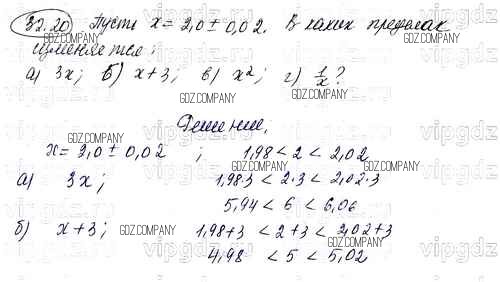 32.20 Пусть x = 2,0 ± 0,02. В каких пределах
изменяется:
а) 3x; б) x+3; в) x²; г) 1/x?
Решение.
x = 2,0 ± 0,02 ; 1,98 < 2 < 2,02
а) 3x; 1,98·3 < 2·3 < 2,02·3
5,94 < 6 < 6,06
б) x+3; 1,98+3 < 2+3 < 2,02+3
4,98 < 5 < 5,02
GDZ.COMPANY
vipgdz